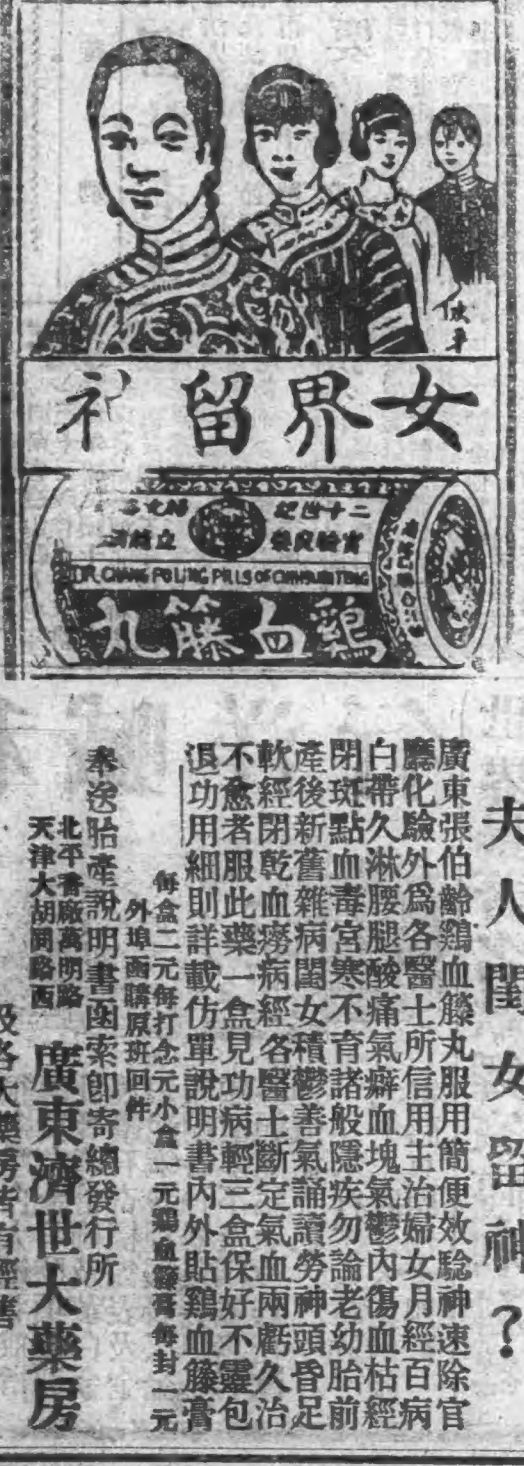 女界留神
二十世紀
實驗良藥
DR. CHANG PO LING PILLS OF
鷄血籐丸
夫人閨女留神?
廣東張伯齡鷄血籐丸服用簡便效騐神速除官
廳化驗外爲各醫士所信用主治婦女月經百病
白帶久淋腰腿酸痛氣癖血塊氣鬱內傷血枯經
閉斑點血毒宮寒不育諸般隱疾勿論老幼胎前
產後新舊雜病閨女積鬱善氣誦讀勞神頭昏足
軟經閉乾血癆病經各醫士斷定氣血兩虧久治
不愈者服此藥一盒見功病輕三盒保好不靈包
退功用細則詳載仿單說明書內外貼鷄血籐膏
每盒二元每打念元小盒一元鷄血籐膏每封一元
外埠函購原班回件
奉送胎產說明書函索卽寄總發行所
北平香廠萬明路
天津大胡同路西
廣東濟世大藥房
及各大藥房皆有經售